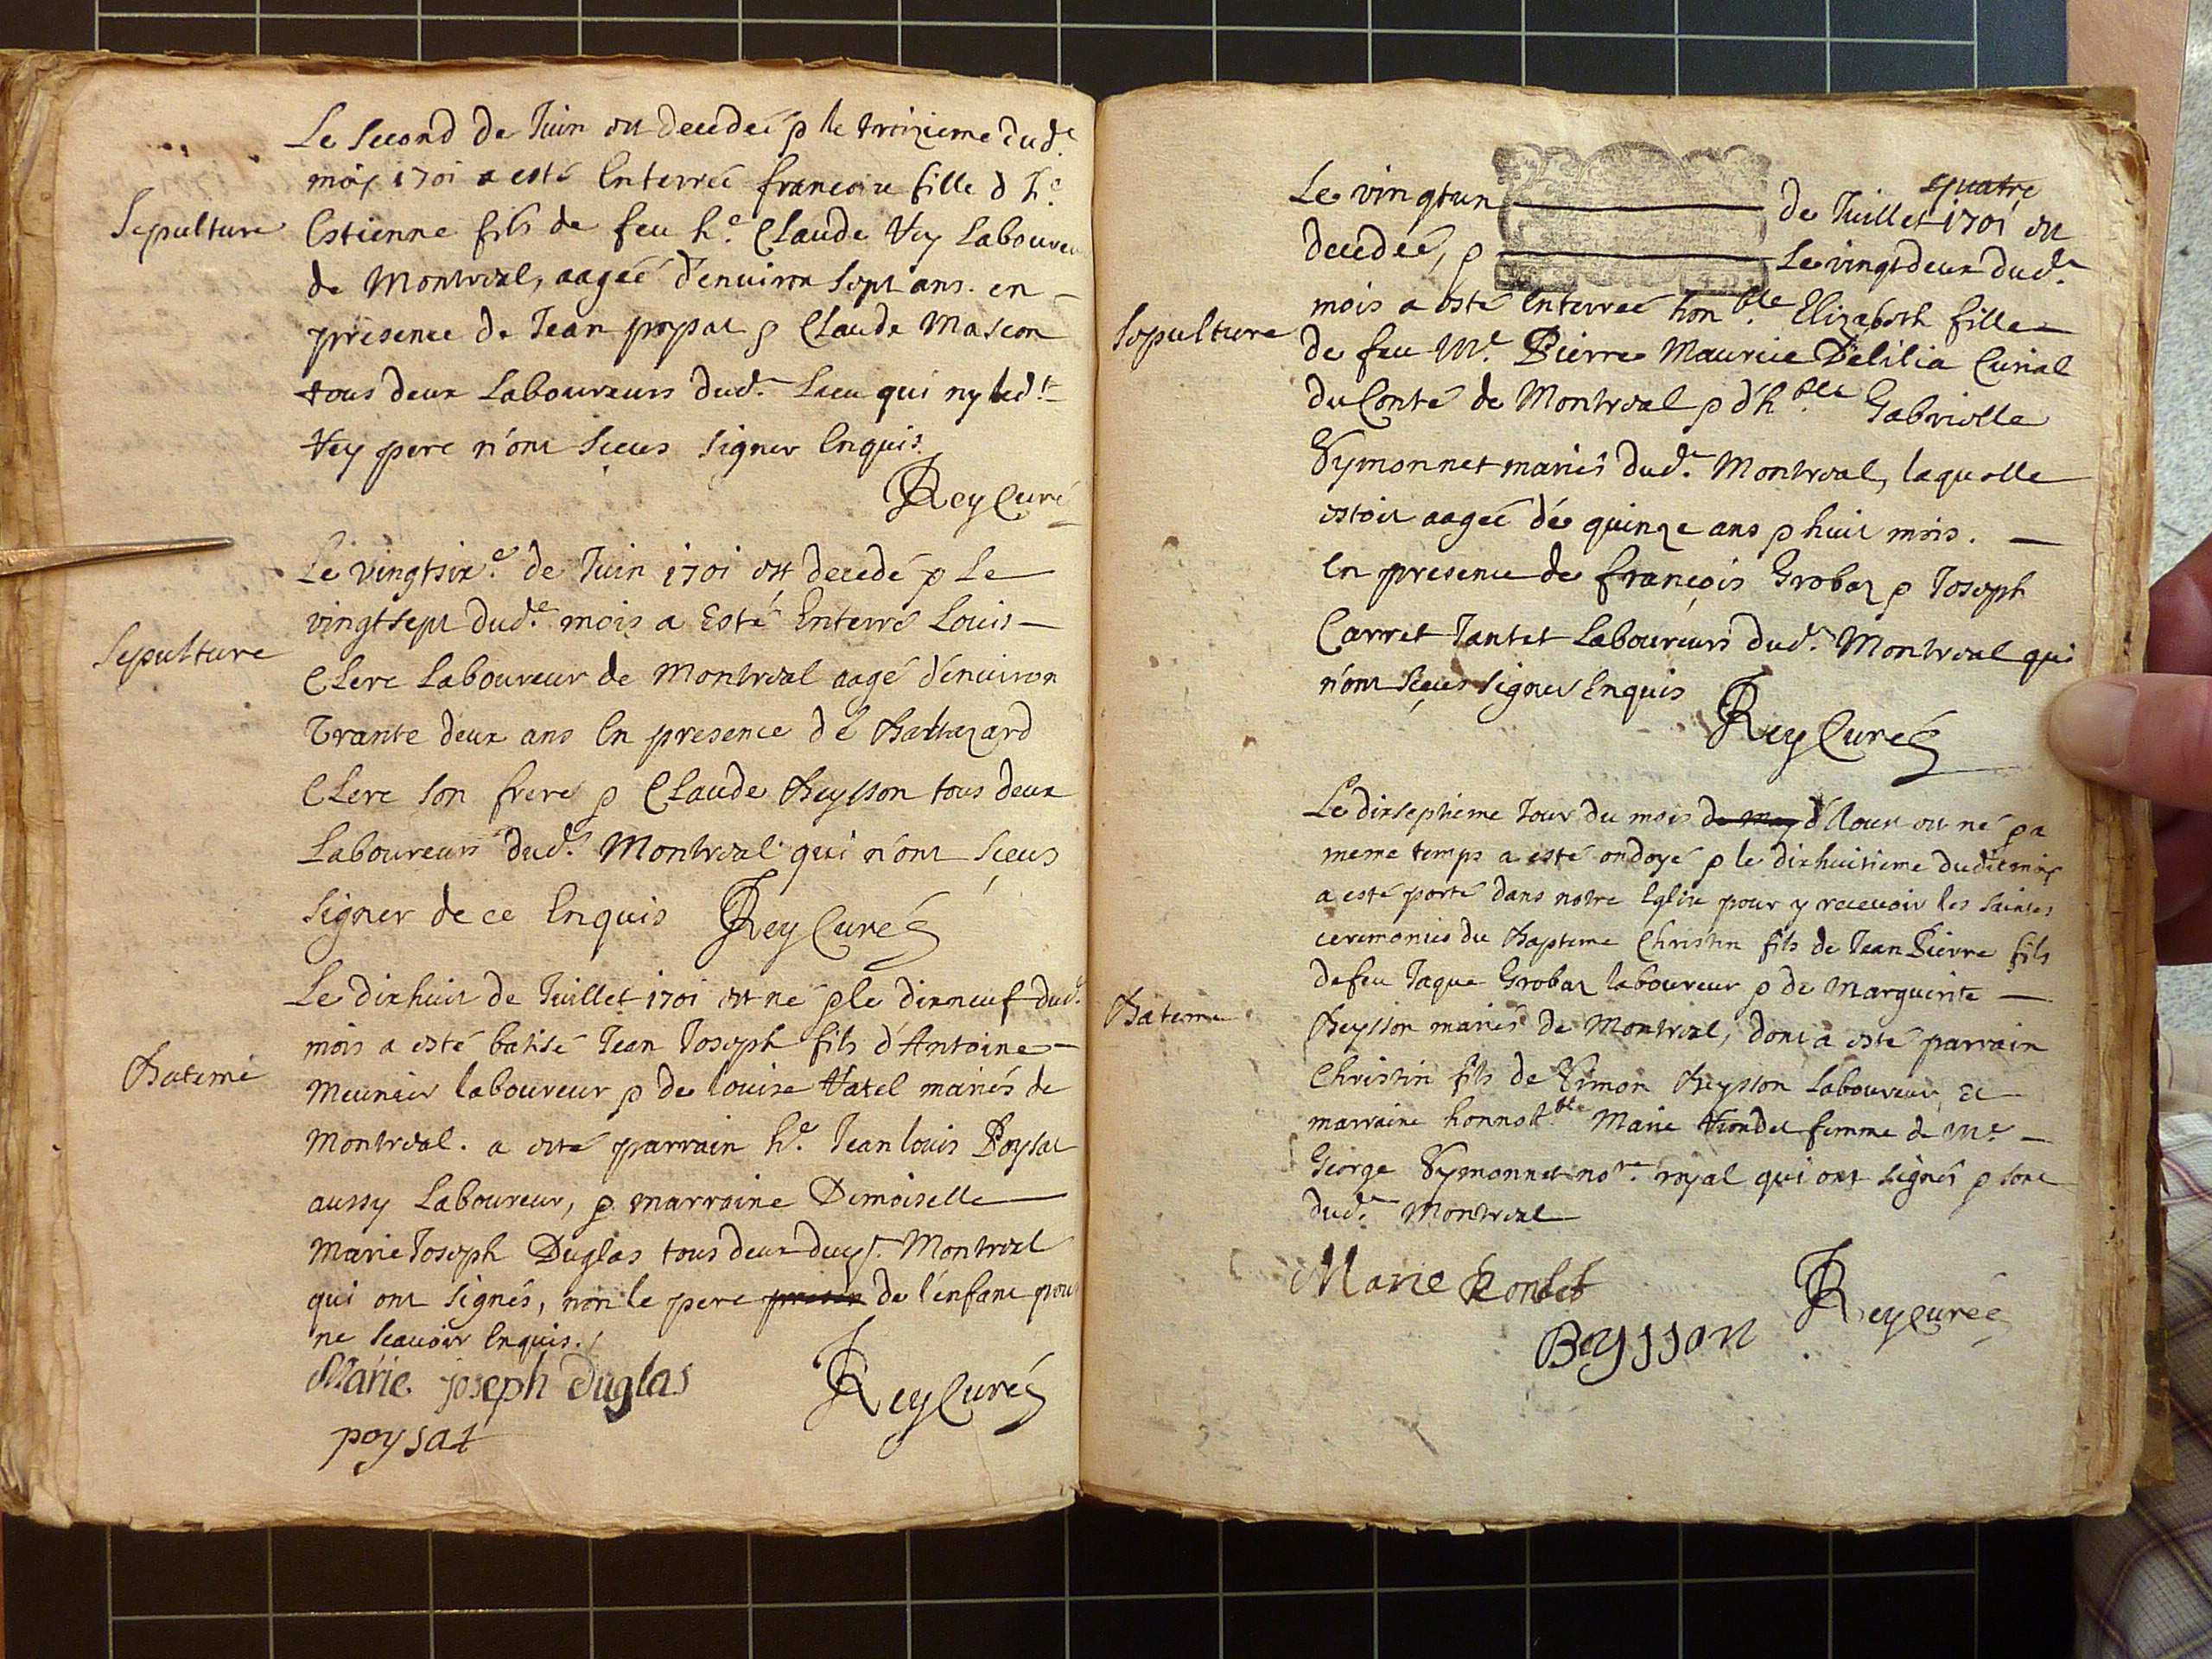 Le second de Juin est decedeé & le troizieme dud.e
mois 1701 a esté Enterreé francoise fille d h.e
Sepulture
Estienne fils de feu h.e Claude Vey Laboureur
de Montreal, aageé d'environ sept ans. en
presence de Jean poysat & Claude Mascon
tous deux Laboureurs dud.t Lieu qui ny led.t
Vey pere n'ont sceus signer Enquis.
Rey Curé
Le vingtsix.e de Juin 1701 est decedé & Le
vingtsept dud.e mois a Esté Enterré Louis
Sepulture
Clerc Laboureur de Montreal aagé d'environ
Trante deux ans En presence dé Baltazard
Clerc son frere & Claude Beysson tous deux
Laboureurs dud.t Montreal qui n'ont sceus
signer de ce Enquis Rey Curé
Le dixhuit de Juillet 1701 est né & le dixneuf dud.t
mois a esté batisé Jean Joseph fils d'Antoine
Bateme
Meunier laboureur & de louise Vatel mariés de
Montreal. a esté parrain h.e Jean louis Poysat
aussy Laboureur, & marraine Demoiselle
Marie Joseph Duglas tous deux dud.t Montreal
qui ont signés, non le pere de l'enfant pour
ne scavoir Enquis.
Marie joseph duglas
Rey Curé
poysat
quatre
Le vingtun de Juillet 1701 est
decedeé, & Le vingtdeux dud.t
mois a esté Enterreé hon.ble Elizabeth fille
Sepulture
de feu M.e Pierre Maurice Delilia Curial
du Conté de Montreal & d'h.ble Gabrielle
Symonnet mariés dud.t Montreal, laquelle
estoit aageé dé quinze ans & huit mois.
En presence de françois Grobaz & Joseph
Carret Tantet Laboureurs dud.t Montreal qui
n'ont sçeus signer Enquis
Rey Curé
Le dixseptieme Jour du mois de may d'Aoux est né & a
meme temps a esté ondoyé & le dixhuitieme dudit mois
a esté porté dans notre Eglise pour y recevoir les saintes
ceremonies du Bapteme Christin fils de Jean Pierre fils
de feu Jaque Grobaz laboureur & de Marguerite
Bateme
Beysson mariés de Montreal, dont a esté parrain
Christin fils de Simon Beysson Laboureur, et
marraine honnot.ble Marie femme de M.e
George Symonnet no.re royal qui ont signés & sont
dud.t Montreal
Marie
Rey curé
Beysson